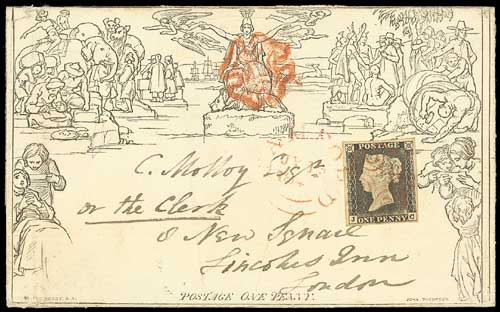 POSTAGE
ONE PENNY
J C
C. Molloy Esqre
or the Clerk
8 New Square
Lincolns Inn
London
POSTAGE ONE PENNY.
JOHN THOMPSON